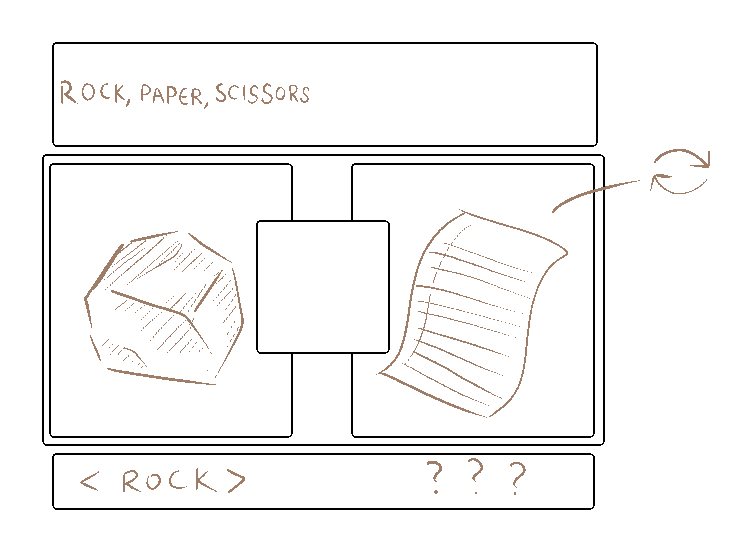 ROCK, PAPER, SCISSORS
< ROCK >
? ? ?